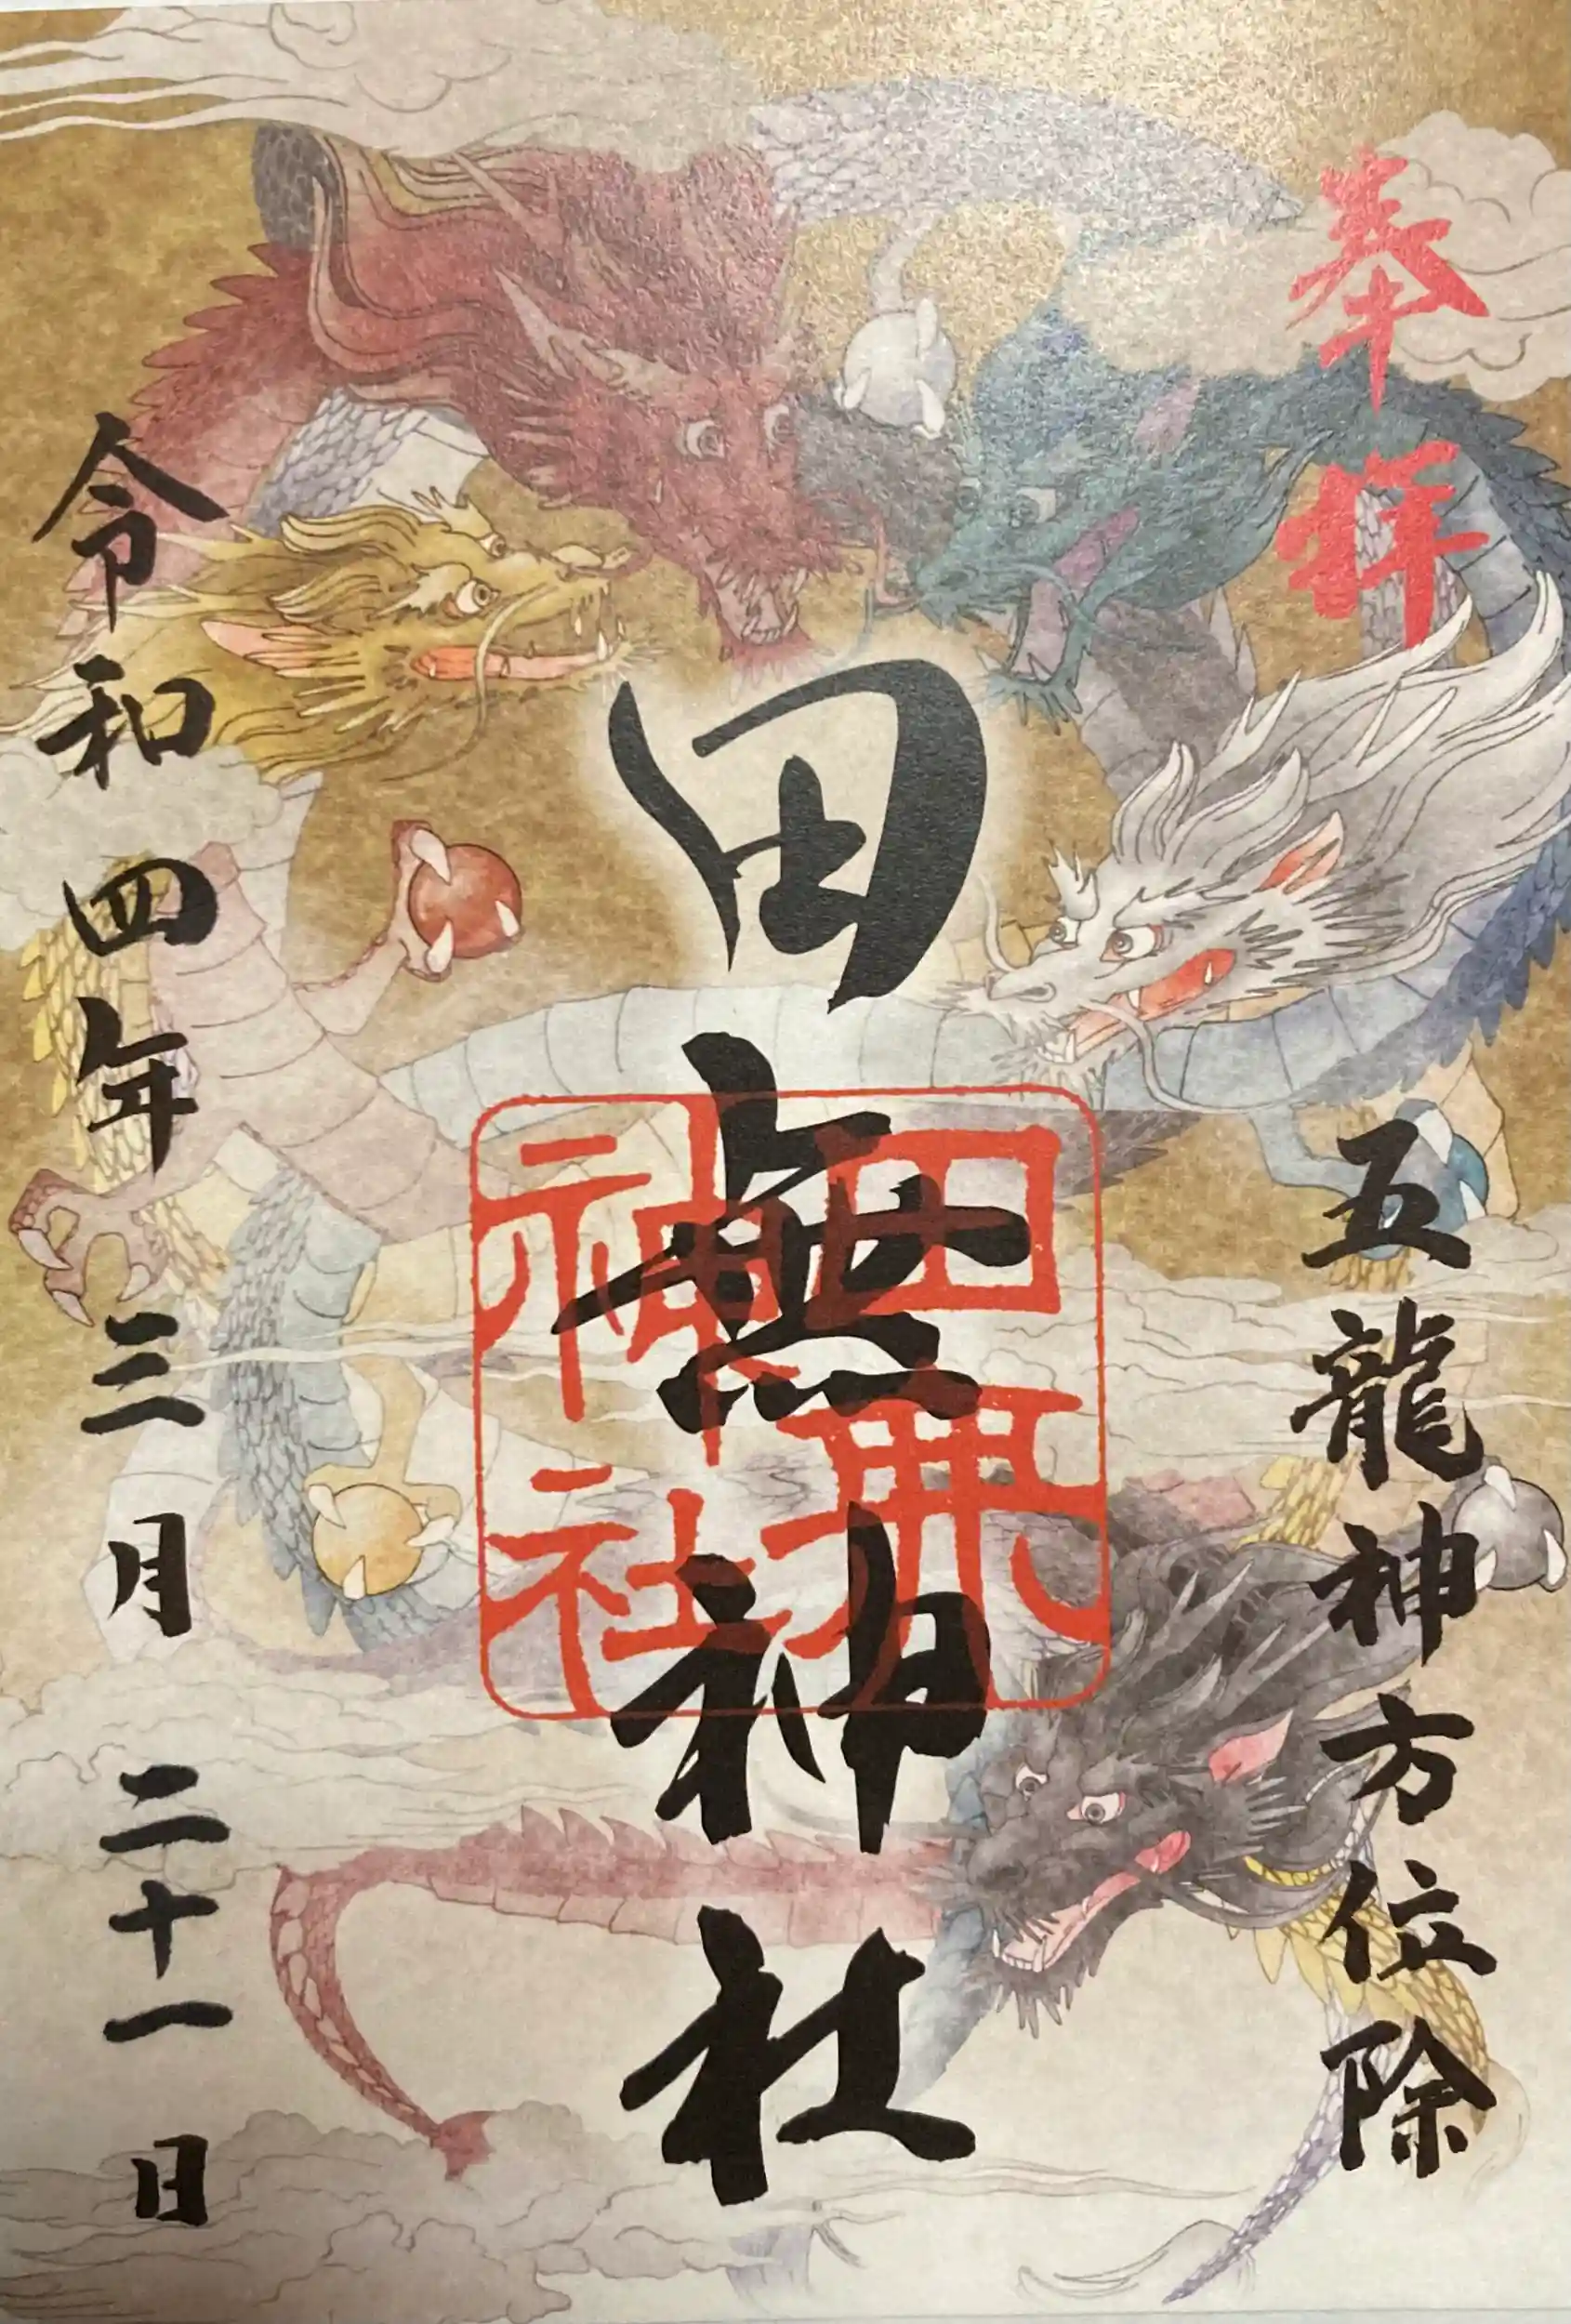 奉拝
五龍神方位除
田無神社
田無神社
令和四年三月二十一日